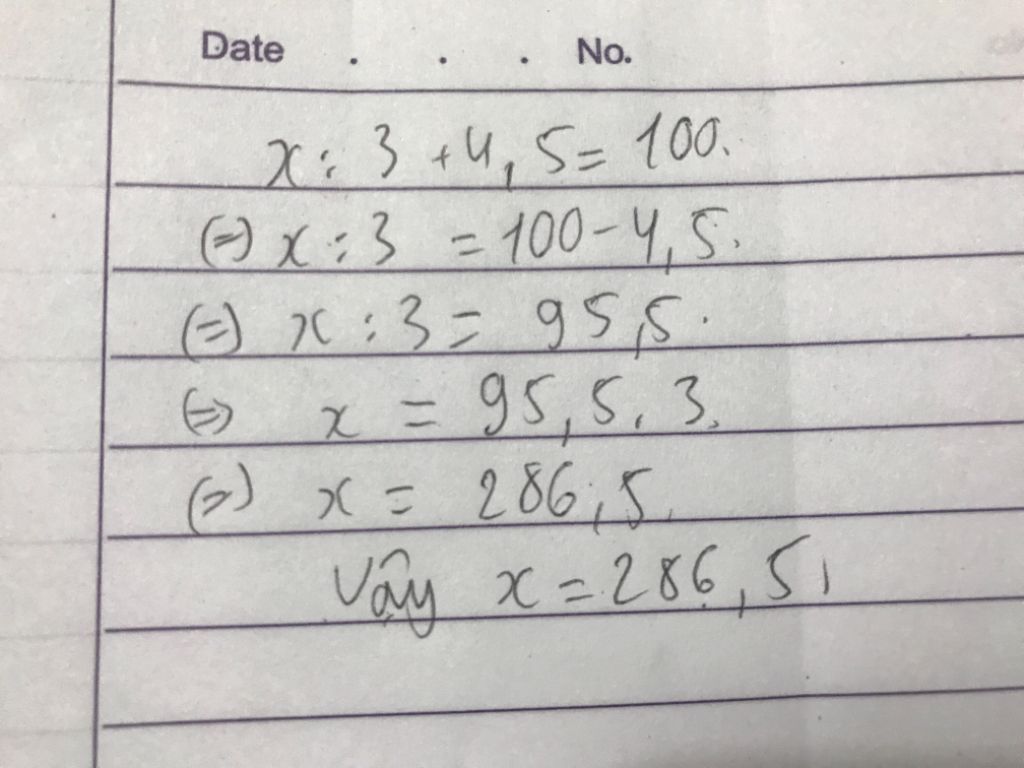 Date . . . No.
x : 3 + 4,5 = 100.
(=) x : 3 = 100 - 4,5.
(=) x : 3 = 95,5.
(=) x = 95,5 . 3.
(=) x = 286,5.
Vậy x = 286,5.